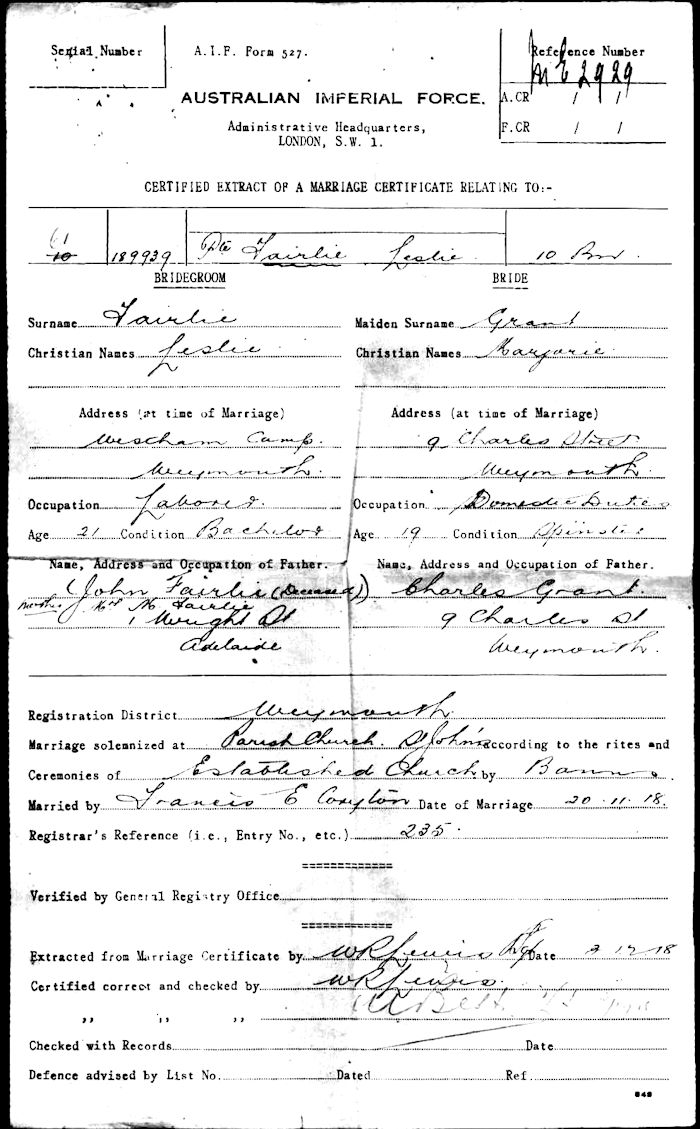 Serial Number A.I.F. Form 527. Reference Number
M E 2929
AUSTRALIAN IMPERIAL FORCE. A.CR / /
Administrative Headquarters, F.CR / /
LONDON, S.W. 1.
CERTIFIED EXTRACT OF A MARRIAGE CERTIFICATE RELATING TO:-
61
10 189939 Pte Fairlie Leslie. 10 Bn.
BRIDEGROOM BRIDE
Surname Fairlie Maiden Surname Grant
Christian Names Leslie Christian Names Marjorie
Address (at time of Marriage) Address (at time of Marriage)
Westham Camp. 9 Charles Street
Weymouth. Weymouth.
Occupation Laborer. Occupation Domestic Duties
Age 21 Condition Bachelor Age 19 Condition Spinster
Name, Address and Occupation of Father. Name, Address and Occupation of Father.
John Fairlie (Deceased) Charles Grant.
mother Mrs M Fairlie
1 Wright St 9 Charles St
Adelaide Weymouth.
Registration District Weymouth.
Marriage solemnized at Parish Church. St John's according to the rites and
Ceremonies of Established Church by Banns.
Married by Francis E Coryton Date of Marriage 20.11.18.
Registrar's Reference (i.e., Entry No., etc.) 235.
Verified by General Registry Office
Extracted from Marriage Certificate by W R Lewis Date 2 12 18
Certified correct and checked by W R Lewis.
,, ,, ,,
Checked with Records Date
Defence advised by List No. Dated Ref.